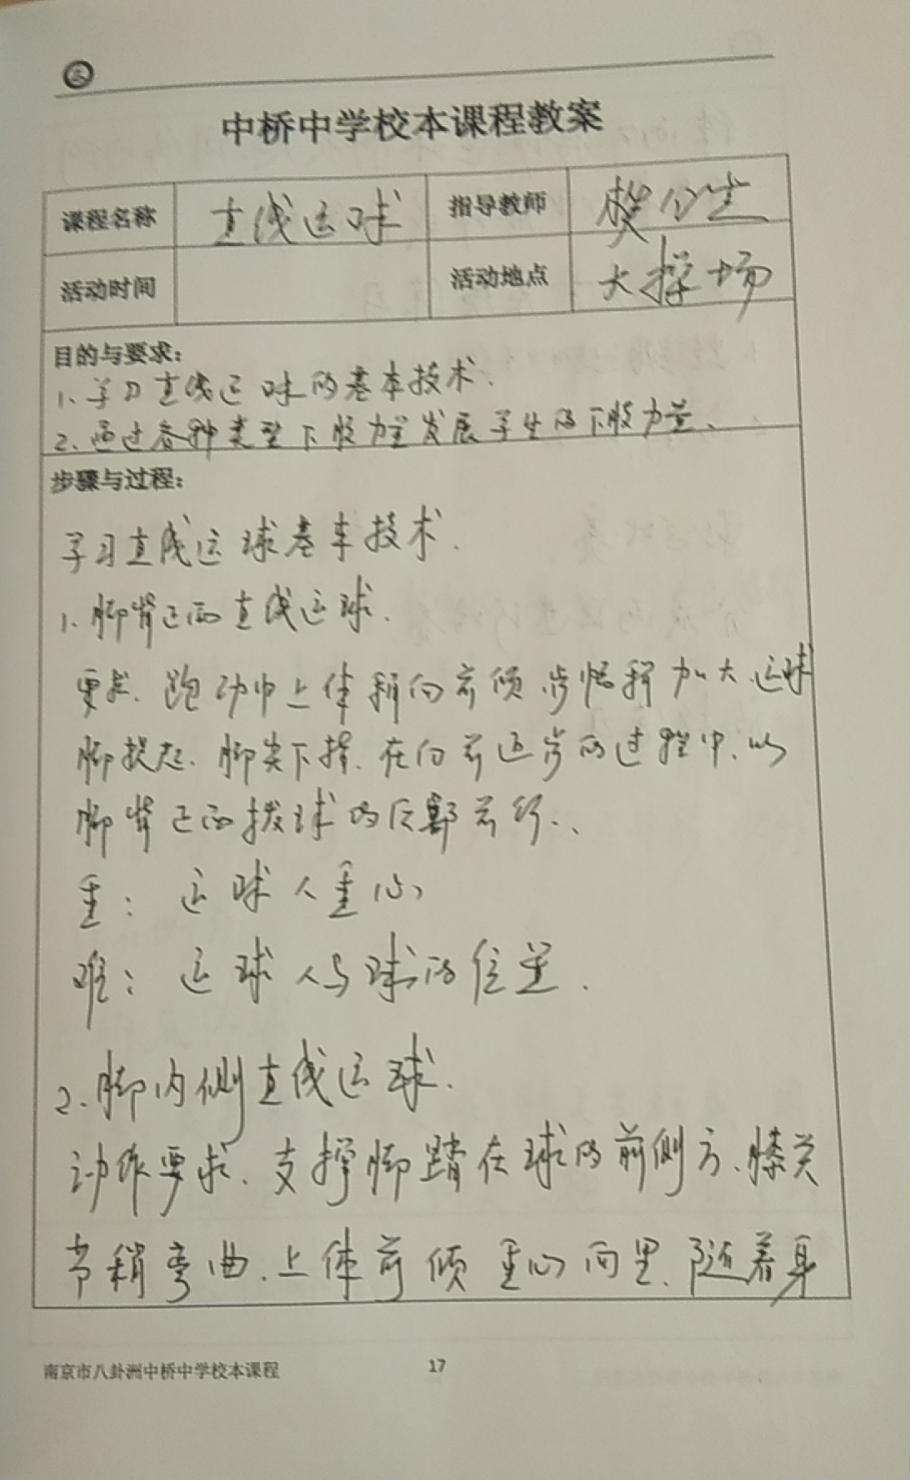 中桥中学校本课程教案
课程名称 直线运球 指导教师 樊
活动时间 活动地点 大操场
目的与要求:
1、学习直线运球的基本技术.
2、通过各种类型下肢力量发展学生的下肢力量、
步骤与过程:
学习直线运球基本技术.
1、脚背正面直线运球.
要求、跑动中上体稍向前倾、步幅稍加大、运球
脚提起、脚尖下指、在向前迈步的过程中、以
脚背正面拨球的后部前行、
重: 运球人重心
难: 运球人与球的位置.
2、脚内侧直线运球.
动作要求、支撑脚踏在球的前侧方、膝关
节稍弯曲、上体前倾 重心向里、随着身
南京市八卦洲中桥中学校本课程 17